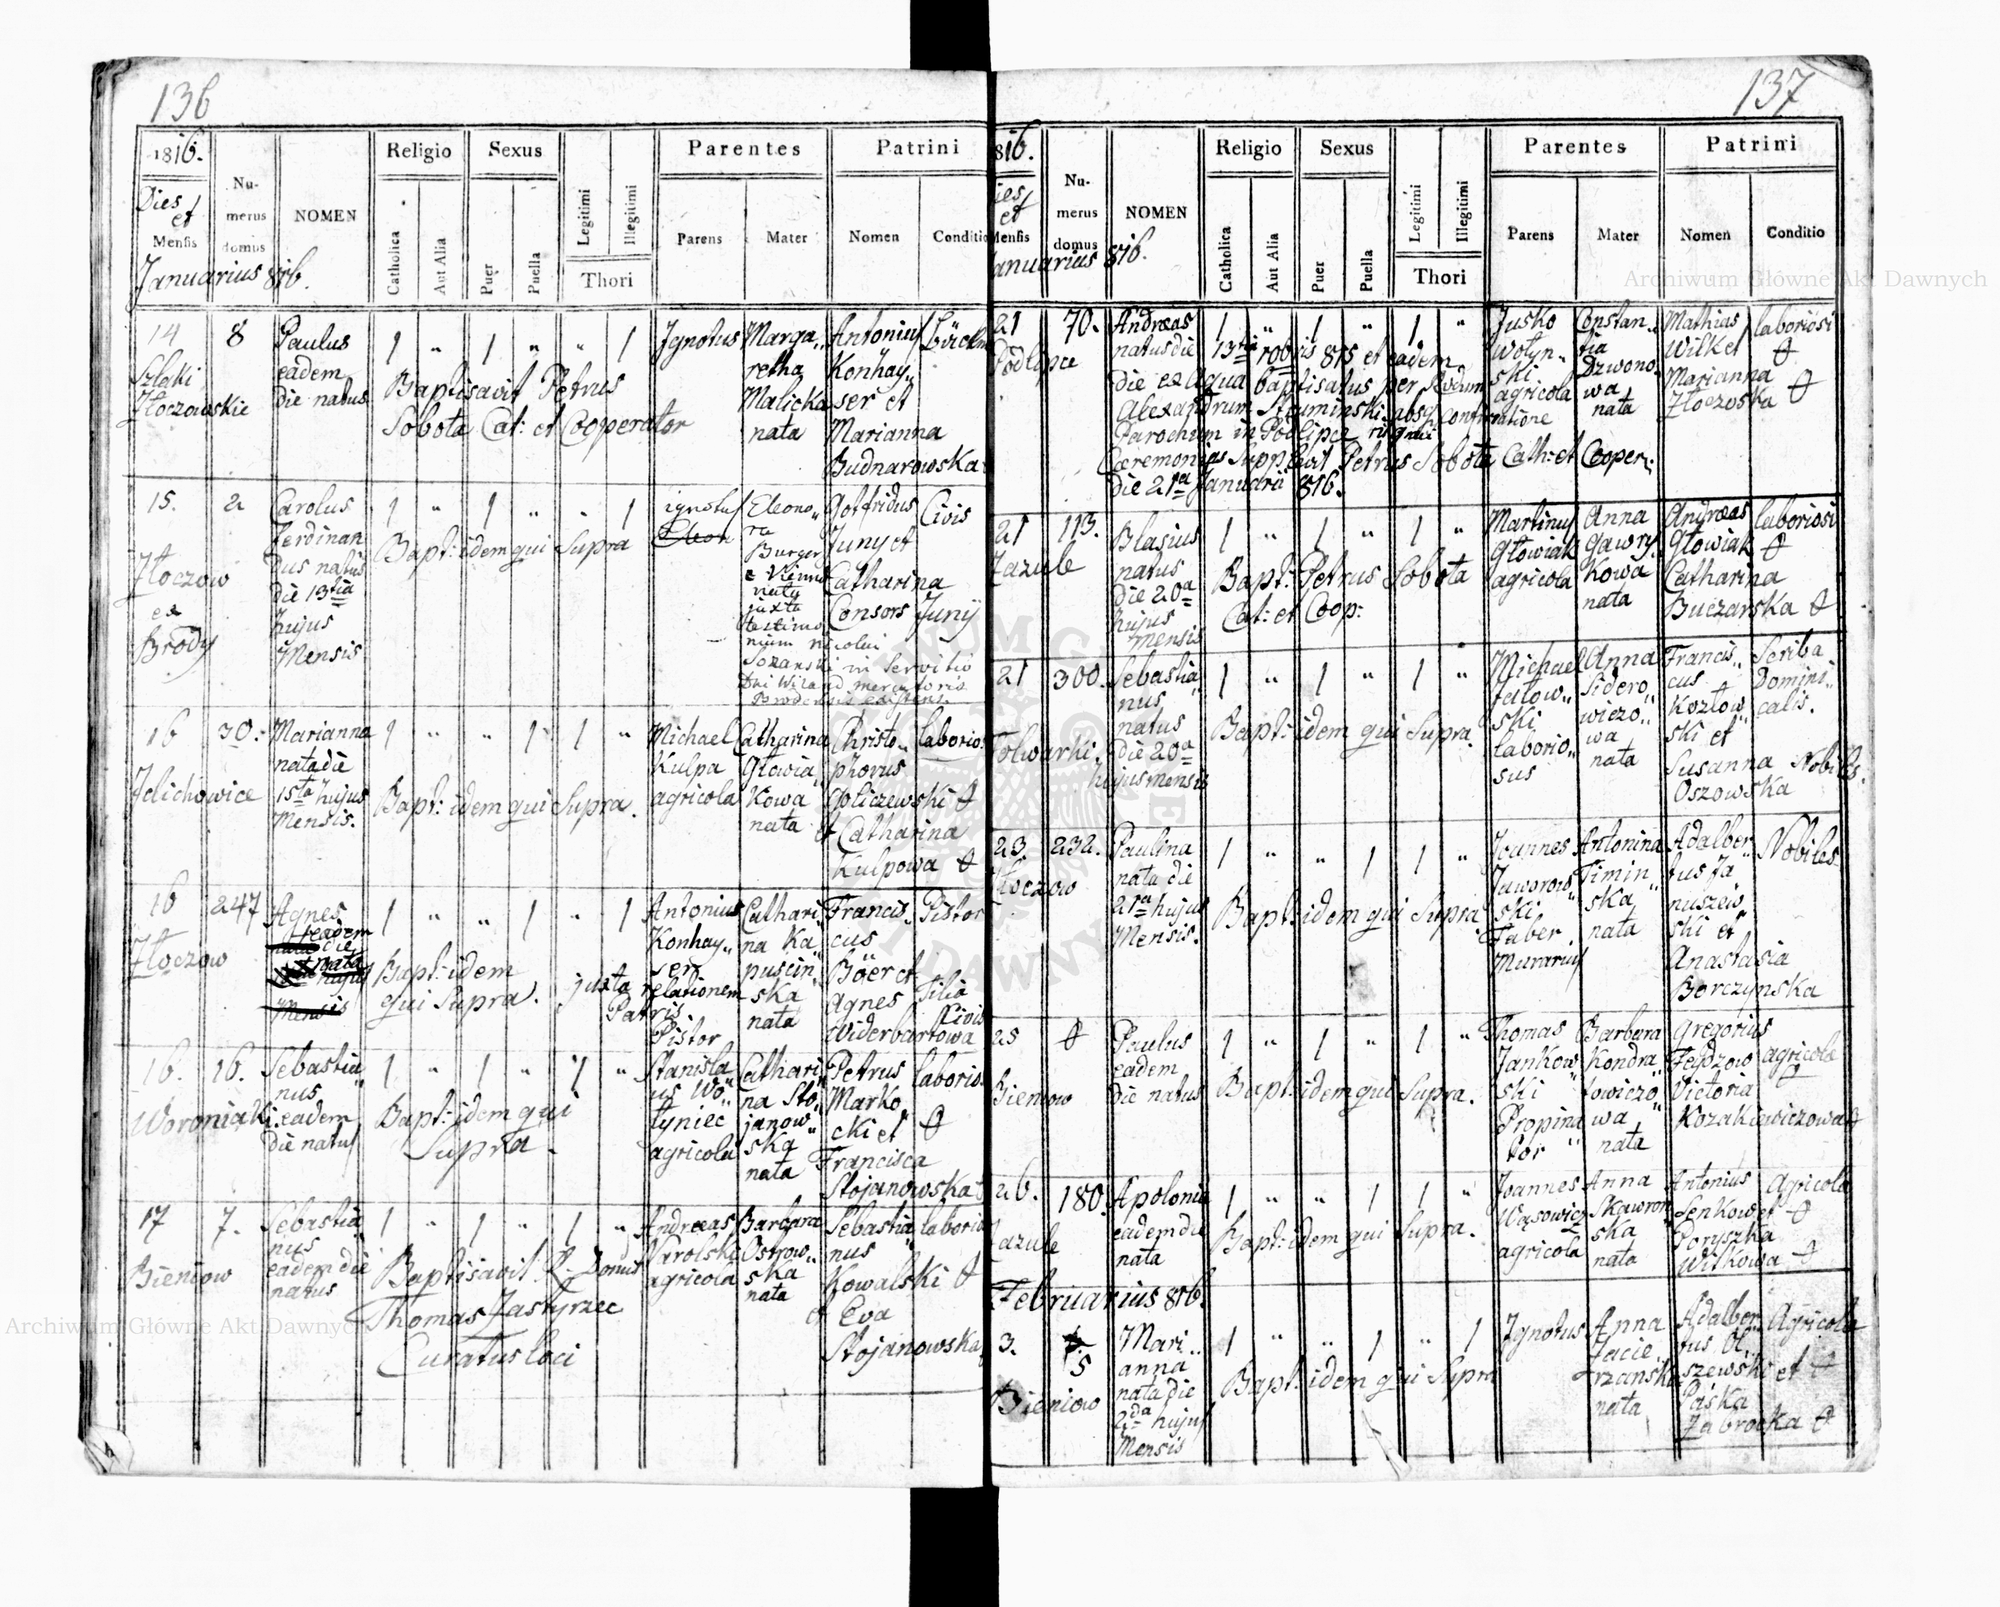 136
1816.
Dies et Mensis
Numerus domus
NOMEN
Religio
Catholica
Aut Alia
Sexus
Puer
Puella
Legitimi
Illegitimi
Thori
Parentes
Parens
Mater
Patrini
Nomen
Conditio
Januarius 816.
14
8
Szlaki
Złoczowskie
Paulus
eadem
die natus
1 " 1 " " 1
Baptisavit Petrus
Sobota Cat: et Cooperator
Ignotus
Marga
retha
Malicka
nata
Antonius
Konhay
ser et
Marianna
Budnarowska
15.
2
Złoczow
ex
Brody
Carolus
Ferdinan
dus natus
die 13tia
hujus
Mensis
1 " 1 " " 1
Bapt: idem qui Supra
ignotus
Eleono
ra
Burger
e Vienna
juxta
testimo
nium Nicolai
in servitio
Gotfridus
Juny et
Catharina
Consors Juny
Civis
16
30.
Jelichowice
Marianna
nata die
15ta hujus
Mensis.
1 " " 1 1 "
Bapt: idem qui Supra.
Michael
Kulpa
agricola
Catharina
Głowia
kowa
nata
Christo
phorus
Goliczewski
et Catharina
Kulpowa
laborio:
16
247
Złoczow
Agnes
eadem
die
nata
1 " " 1 " 1
Bapt: idem
qui Supra.
juxta relationem
Patris
Antonius
Konhay
ser
Pistor
Cathari
na Ka
puscin
ska
nata
Francis
cus
Böer et
Agnes
Widerbartowa
Pistor
Filia
Civis
16.
16.
Woroniaki
Sebastia
nus
eadem
die natus
1 " 1 " 1 "
Bapt: idem qui
Supra.
Stanisla
us Wo
łyniec
agricola
Cathari
na Sto
janow
ska
nata
Petrus
Marko
cki et
Francisca
Stojanowska
laborio:
17
7.
Bieniow
Sebastia
nus
eadem die
natus
1 " 1 " 1 "
Baptisavit R. Donus
Thomas Jastrzec
Curatus loci
Andreas
Narolski
agricola
Barbara
Ostrow
ska
nata
Sebastia
nus
Kowalski
et Eva
Stojanowska
laborio
137
816.
Dies et Mensis
Numerus domus
NOMEN
Religio
Catholica
Aut Alia
Sexus
Puer
Puella
Legitimi
Illegitimi
Thori
Parentes
Parens
Mater
Patrini
Nomen
Conditio
Januarius 816.
21
70.
Podlipce
Andreas
natus die 13tia 10bris 815 et eadem
die ex aqua baptisatus per
Alexandrum Stuminski absq
Parochum in Podlipce
Ceremonias Supplevit Petrus Sobota Cath: et Cooper:
die 21a Januarii 816.
1 " 1 " 1 "
Jusko
Wołyn
ski
agricola
Constan
tia
Dzwono
wa
nata
Mathias
Wilk et
Marianna
Złoczoska
laboriosi
21
113.
Zazule
Blasius
natus
die 20a
hujus
mensis
1 " 1 " 1 "
Bapt: Petrus Sobota
Cat: et Coop:
Martinus
Głowiak
agricola
Anna
Gawry
kowa
nata
Andreas
Głowiak
Catharina
Buczarska
laboriosi
21
300.
Folwarki
Sebastia
nus
natus
die 20a
hujus mensis
1 " 1 " 1 "
Bapt: idem qui Supra
Michael
Fałow
ski
laborio
sus
Anna
Sidero
wiczo
wa
nata
Francis
cus
Kozłow
ski et
Susanna
Oszowska
Scriba
Domini
calis.
Nobilis.
23
232.
Złoczow
Paulina
nata die
21a hujus
Mensis.
1 " " 1 1 "
Bapt: idem qui Supra.
Joannes
Jaworow
ski
Faber
Murarius
Antonina
Timin
ska
nata
Adalber
tus Ja
nuszew
ski et
Anastasia
Borczynska
Nobiles
25
Bieniow
Paulus
eadem
die natus
1 " 1 " 1 "
Bapt: idem qui Supra.
Thomas
Jankow
ski
Propina
tor
Barbara
Kondra
towiczo
wa
nata
Gregorius
Fedzow
Victoria
Kozakiewiczowa
agricola
26.
180.
Zazule
Apolonia
eadem die
nata
1 " " 1 1 "
Bapt: idem qui Supra.
Joannes
Wąsowicz
agricola
Anna
Skawron
ska
nata
Antonius
Senkow et
Paryszka
Witkowa
Agricola
Februarius 816.
3.
5
Bieniow
Mari
anna
nata die
2da hujus
Mensis
1 " " 1 " 1
Bapt: idem qui Supra
Ignotus
Anna
Zacie
rzanska
nata
Adalber
tus Ol
szewski et
Paska
Zabrocka
Agricola
Archiwum Główne Akt Dawnych
Archiwum Główne Akt Dawnych